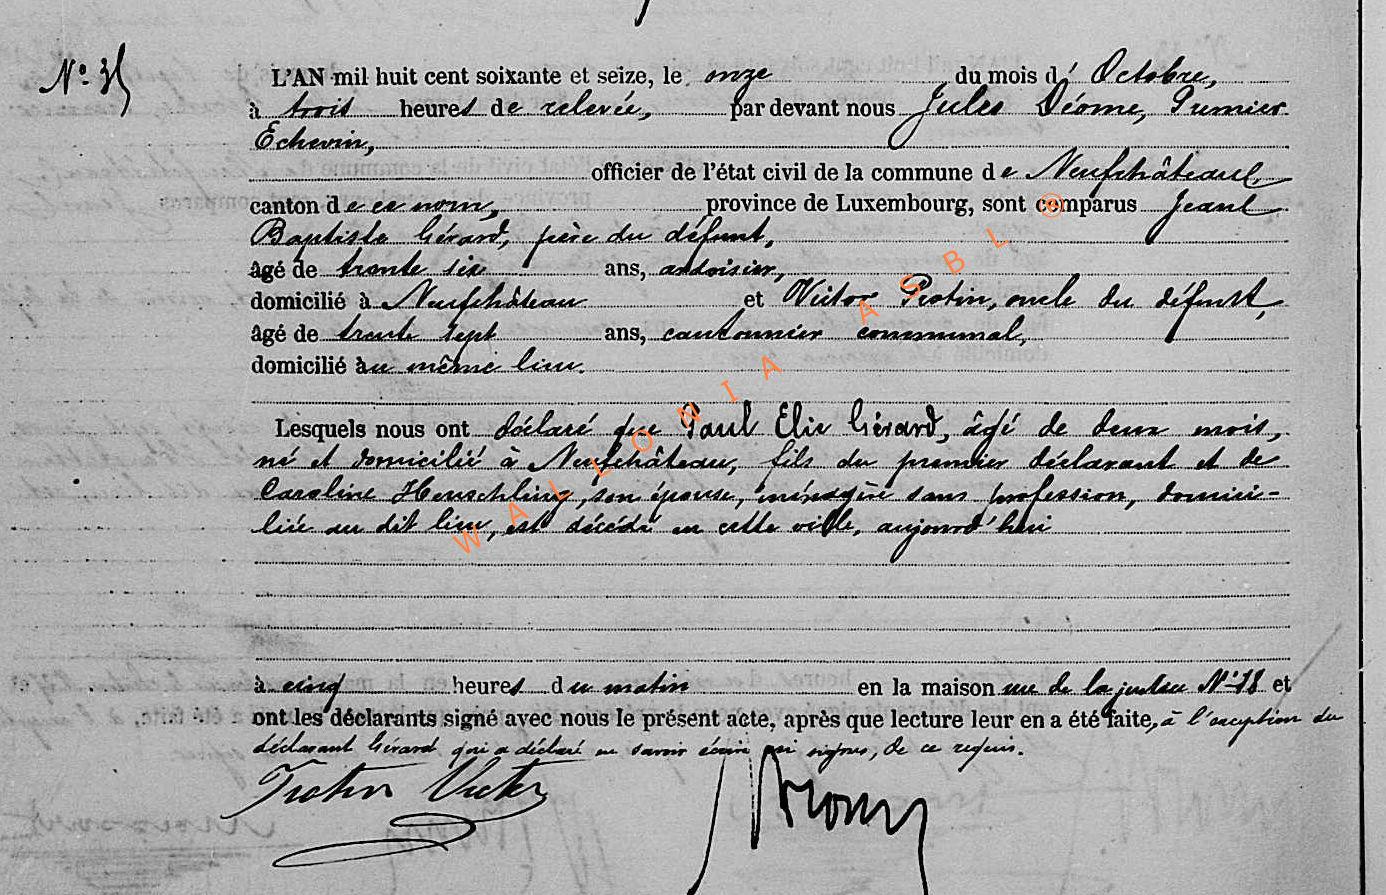 N° 35
L'AN mil huit cent soixante et seize, le onze du mois d' Octobre,
à trois heures de relevée, par devant nous Jules Déome, Premier
Echevin,
officier de l'état civil de la commune de Neufchâteau,
canton de ce nom, province de Luxembourg, sont comparus Jean
Baptiste Gérard, père du défunt,
âgé de trente six ans, ardoisier,
domicilié à Neufchâteau et Victor Protin, oncle du défunt,
âgé de trente sept ans, cantonnier communal,
domicilié au même lieu.
Lesquels nous ont déclaré que Paul Elie Gérard, âgé de deux mois,
né et domicilié à Neufchâteau, fils du premier déclarant et de
Caroline Henschling, son épouse, ménagère sans profession, domici-
liée au dit lieu, est décédé en cette ville, aujourd'hui
à cinq heures du matin en la maison rue de la N° 18 et
ont les déclarants signé avec nous le présent acte, après que lecture leur en a été faite, à l'exception du
déclarant Gérard qui a déclaré ne savoir écrire ni signer, de ce requis.
Protin Victor
WALLONIA ASBL ®